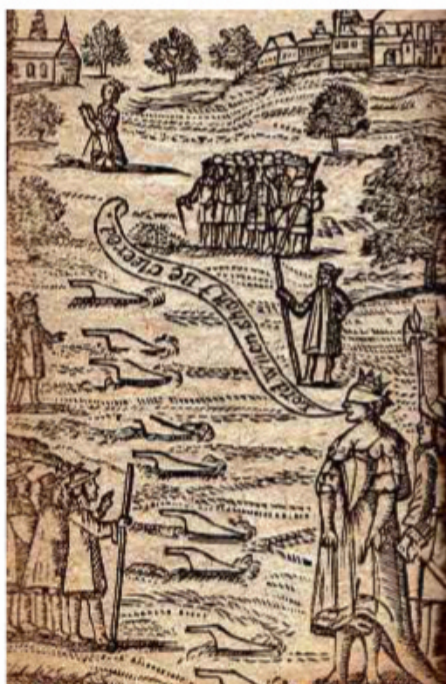 Lord When Shall I Be cleered